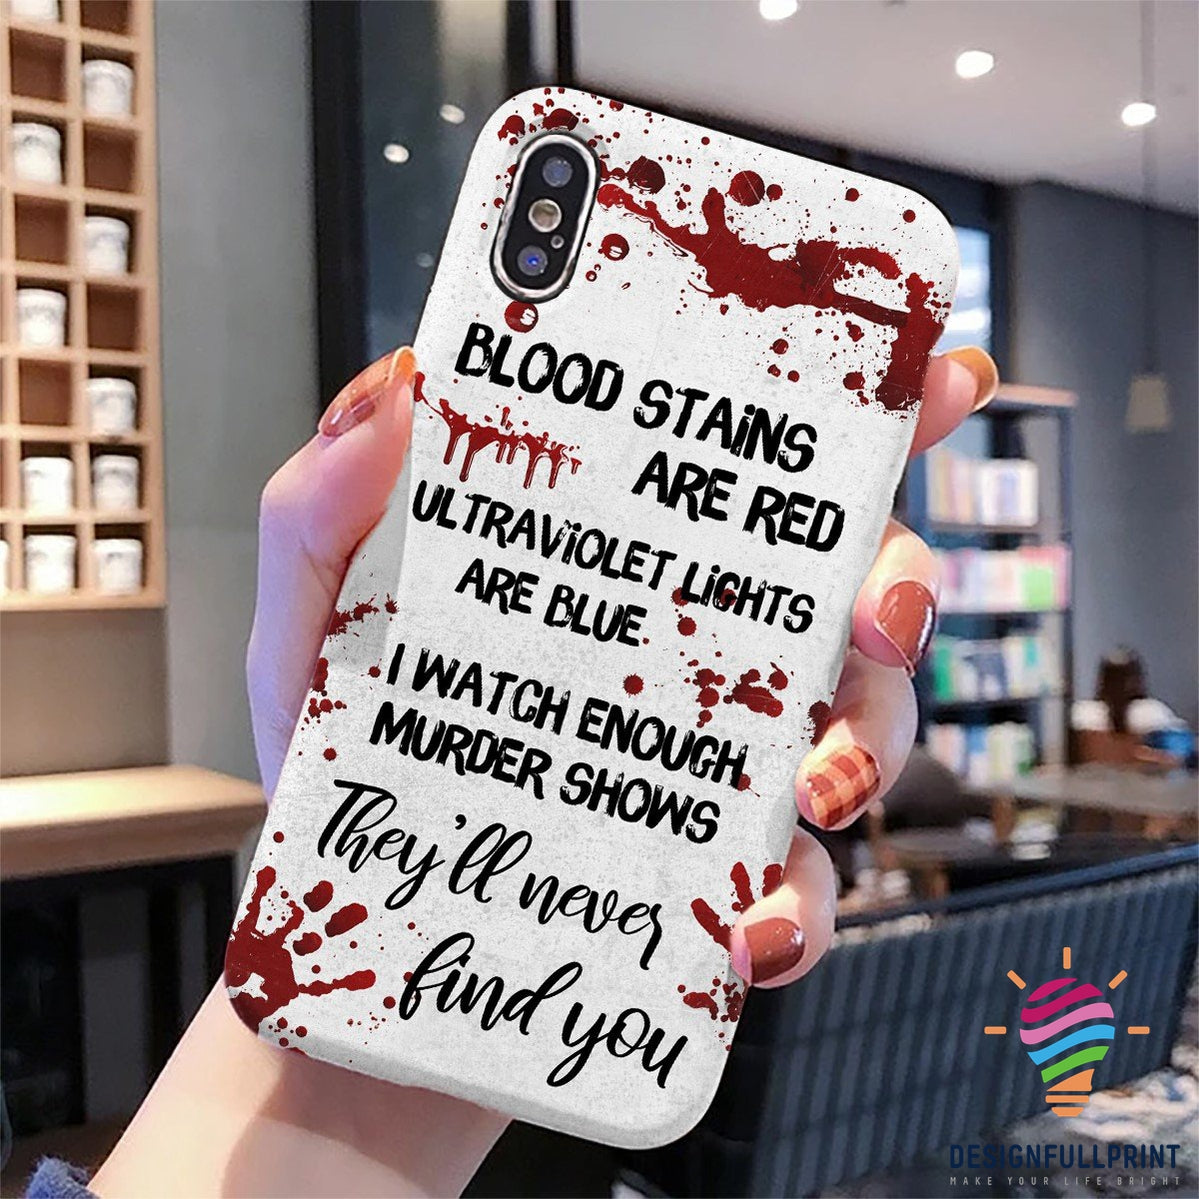 BLOOD STAINS
ARE RED
ULTRAVIOLET LIGHTS
ARE BLUE
I WATCH ENOUGH
MURDER SHOWS
They'll never
find you
DESIGNFULLPRINT
MAKE YOUR LIFE BRIGHT